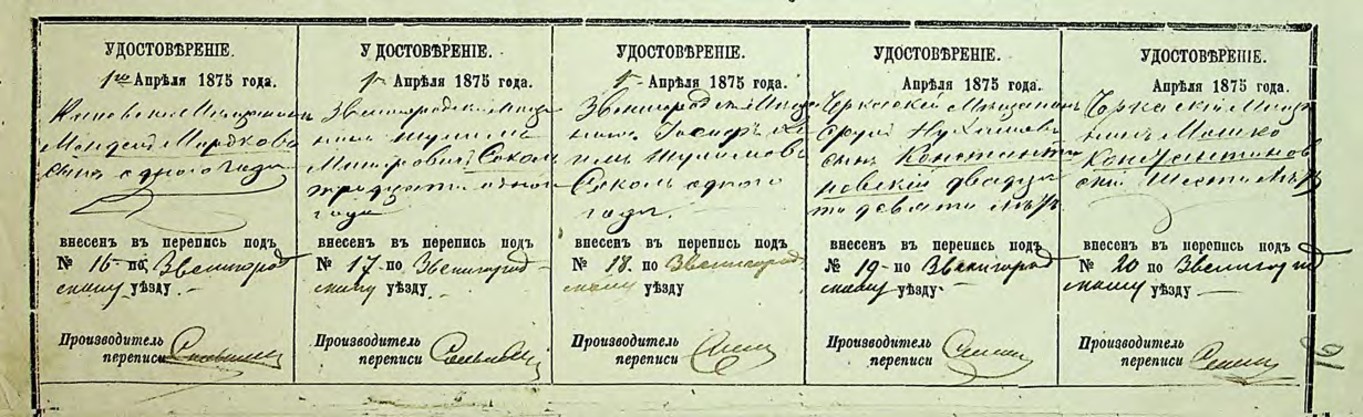 УДОСТОВѢРЕНІЕ.
1го Апрѣля 1875 года.
Мордковъ
сынъ одного года
внесенъ въ перепись подъ
№ 16 по Звенигород
скому уѣзду.
Производитель
переписи
УДОСТОВѢРЕНІЕ.
1 Апрѣля 1875 года.
Звенигородскій Мѣща
нинъ Шулимъ
Меировичъ Соколъ
тридцати одного
года
внесенъ въ перепись подъ
№ 17 по Звенигород-
скому уѣзду.
Производитель
переписи
УДОСТОВѢРЕНІЕ.
1 Апрѣля 1875 года.
Звенигородскій Мѣща
нинъ
Шулимовъ
Соколъ одного
года.
внесенъ въ перепись подъ
№ 18. по Звенигород
скому уѣзду
Производитель
переписи
УДОСТОВѢРЕНІЕ.
Апрѣля 1875 года.
Черкаскій Мѣщанинъ
Срул Нухимовъ
сынъ Константи
новскій двадца
ти девяти лѣтъ
внесенъ въ перепись подъ
№ 19 по Звенигород
скому уѣзду.
Производитель
переписи
УДОСТОВѢРЕНІЕ.
Апрѣля 1875 года.
Черкаскій Мѣща
нинъ Мошко
Константинов
скій Шести лѣтъ
внесенъ въ перепись подъ
№ 20 по Звенигород
скому уѣзду
Производитель
переписи